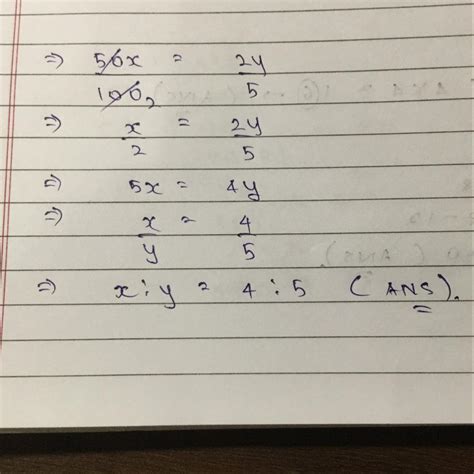 ⇒ 50x/100 2 = 2y/5
⇒ x/2 = 2y/5
⇒ 5x = 4y
⇒ x/y = 4/5
⇒ x : y = 4 : 5 (ANS).